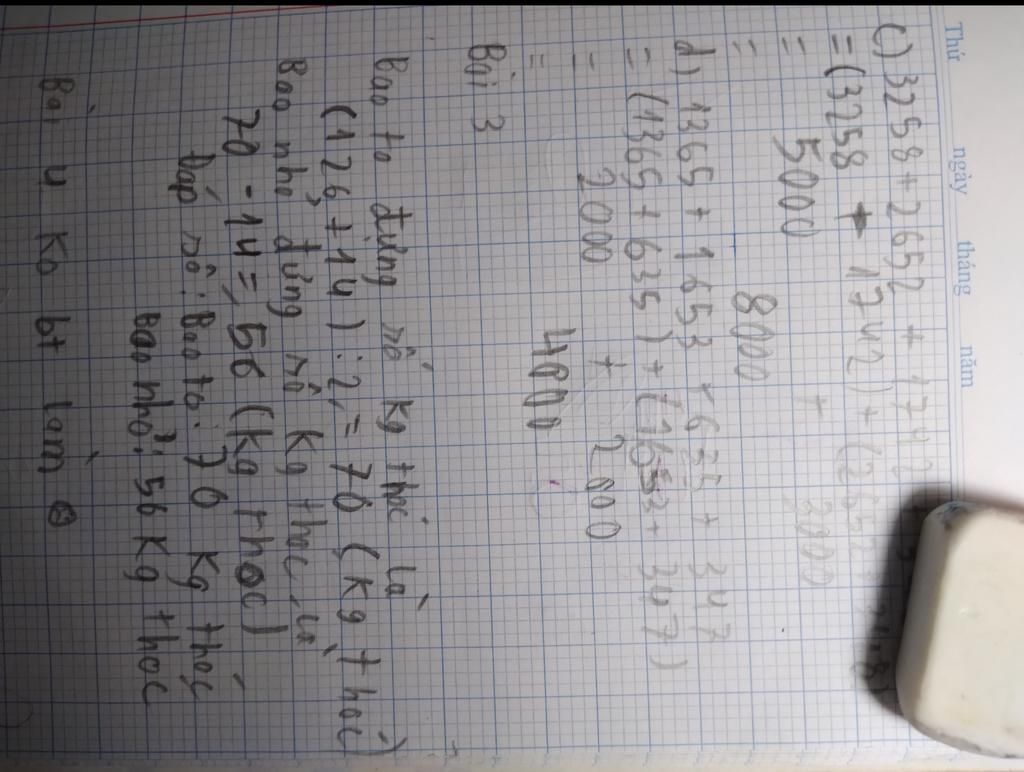 Thứ ngày tháng năm
c) 3258 + 2652 + 1742
= (3258 + 1742) + (2652 +
= 5000 + 3000
= 8000
d) 1365 + 1653 + 635 + 347
= (1365 + 635) + (1653 + 347)
= 2000 + 2000
= 4000
Bài 3
Bao to đựng số kg thóc là
(126 + 14) : 2 = 70 (kg thóc)
Bao nhỏ đựng số kg thóc là
70 - 14 = 56 (kg thóc)
Đáp số: Bao to: 70 kg thóc
Bao nhỏ: 56 kg thóc
Bài 4 Ko bt làm